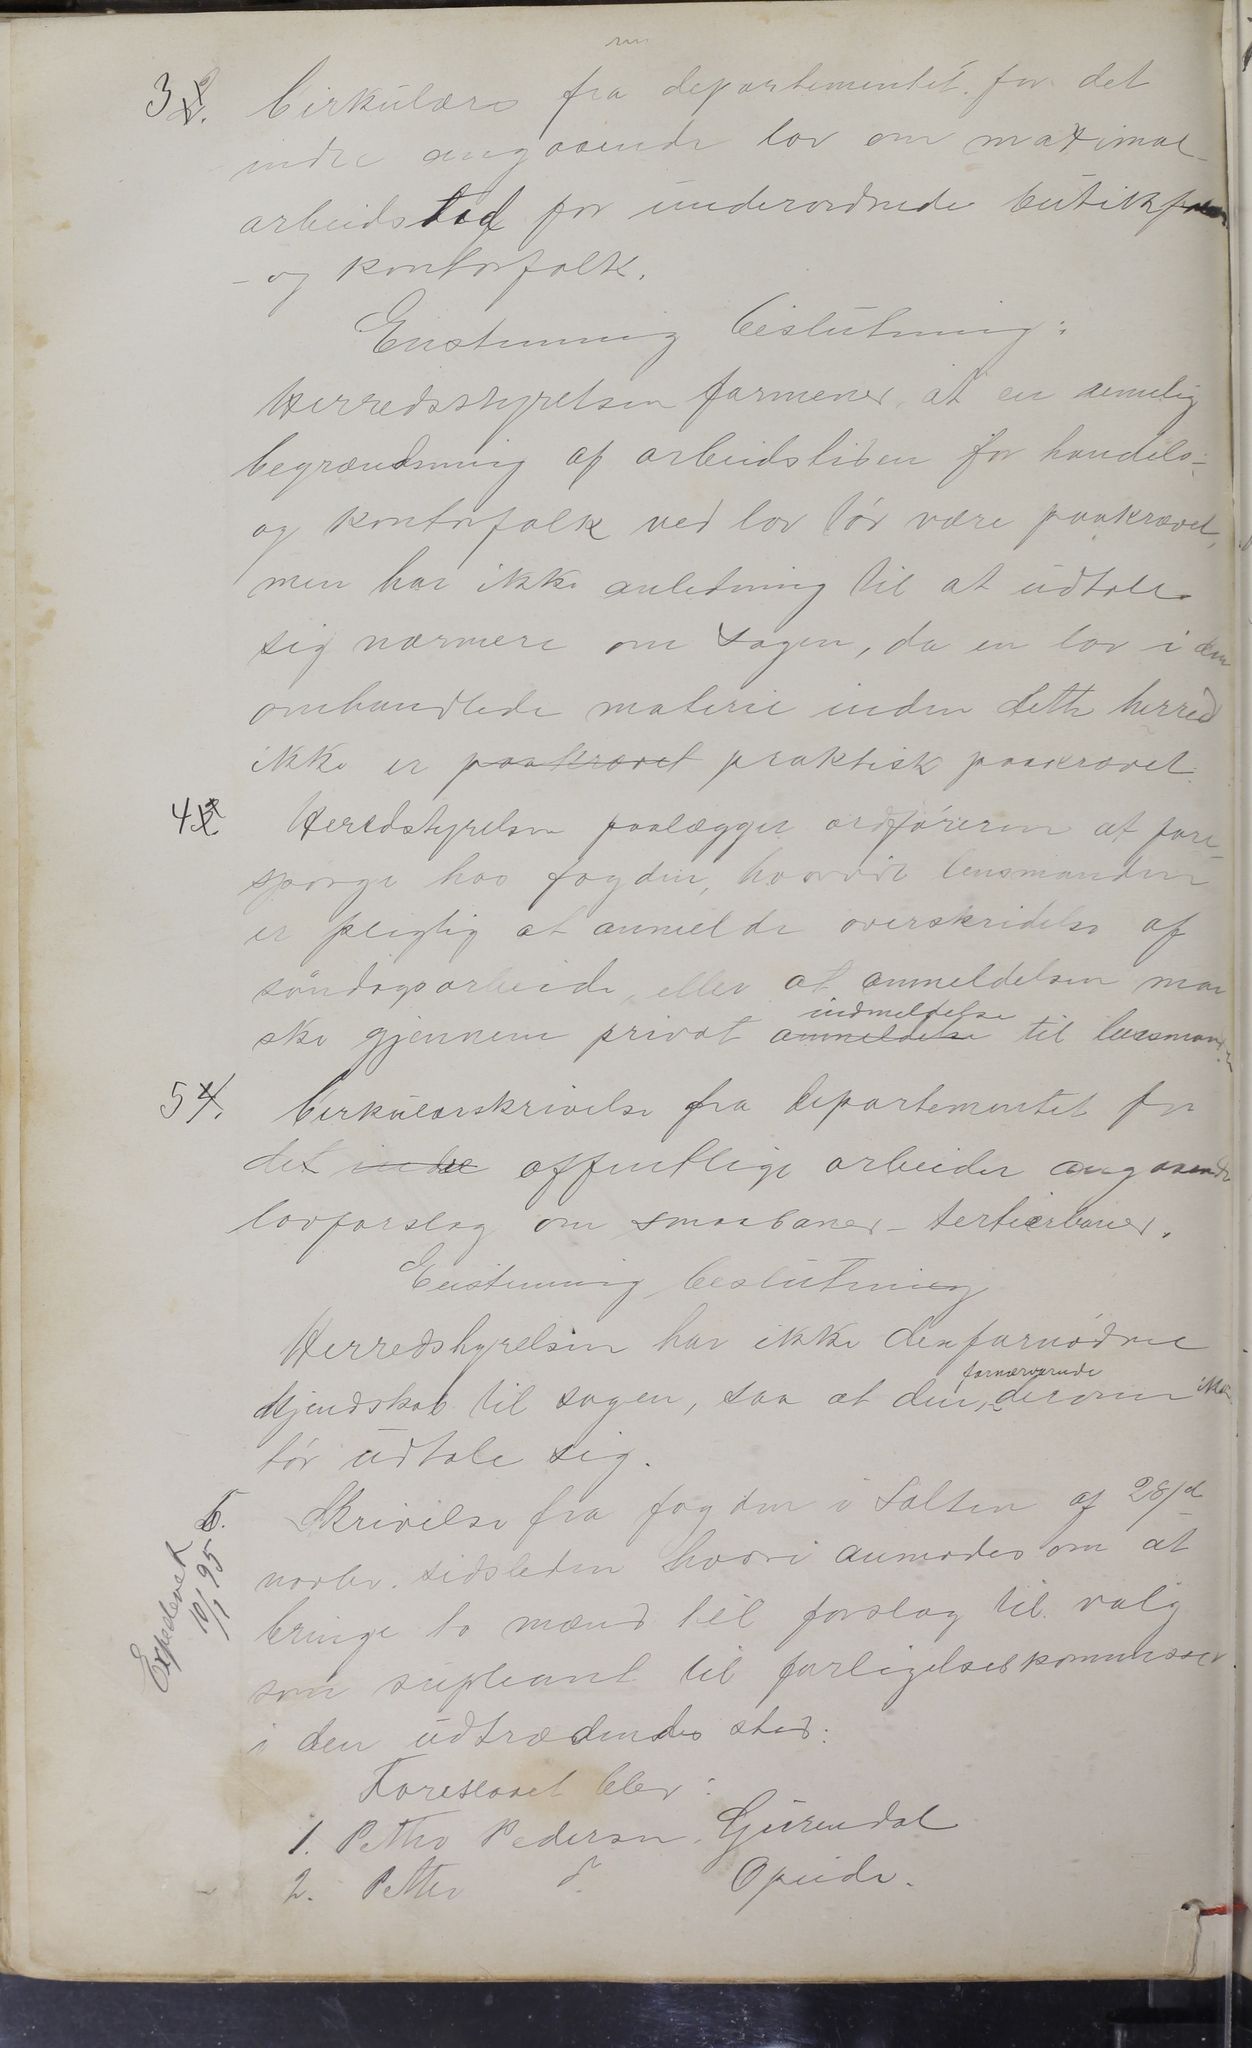 3. Cirkulære fra departementet for det
indre angaaende lov om maximal-
arbeidstid for underordnede butikf
- og kontorfolk.
Enstemmig beslutning:
Herredsstyrelsen formener, at en rimelig
begrændsning af arbeidstiden for handels-
og kontorfolk ved lov tør være paakrævet,
men har ikke anledning til at udtale
sig nærmere om sagen, da en lov i den
omhandlede materie inden dette herred
ikke er paakrævet praktisk paakrævet.
4 Heredstyrelsen paalægger ordføreren at fore-
spørge hos fogden, hvorvidt lensmanden
er pligtig at anmelde overskridelse af
søndagsarbeide, eller at anmeldelsen maa
indmeldelse
ske gjennem privat anmeldelse til lensmanden
5 4. Cirkulærskrivelse fra departementet for
det indre offentlige arbeider angaaende
lovforslag om smaabaner - tertiærbaner.
Enstemmig beslutning
Herredstyrelsen har ikke den fornødne
fornærværende
kjendskab til sagen, saa at den, derom ikke
tør udtale sig.
5. Skrivelse fra fogden i Salten af 28/d
novbr. sidstleden hvori anmodes om at
bringe to mænd til forslag til valg
som supleant til forligelseskommissær
i den udtrædendes sted.
Expederet
10/1 95
Foreslaaet blev:
1. Petter Pedersen, Gjurendal
2. Petter d° Opeide.